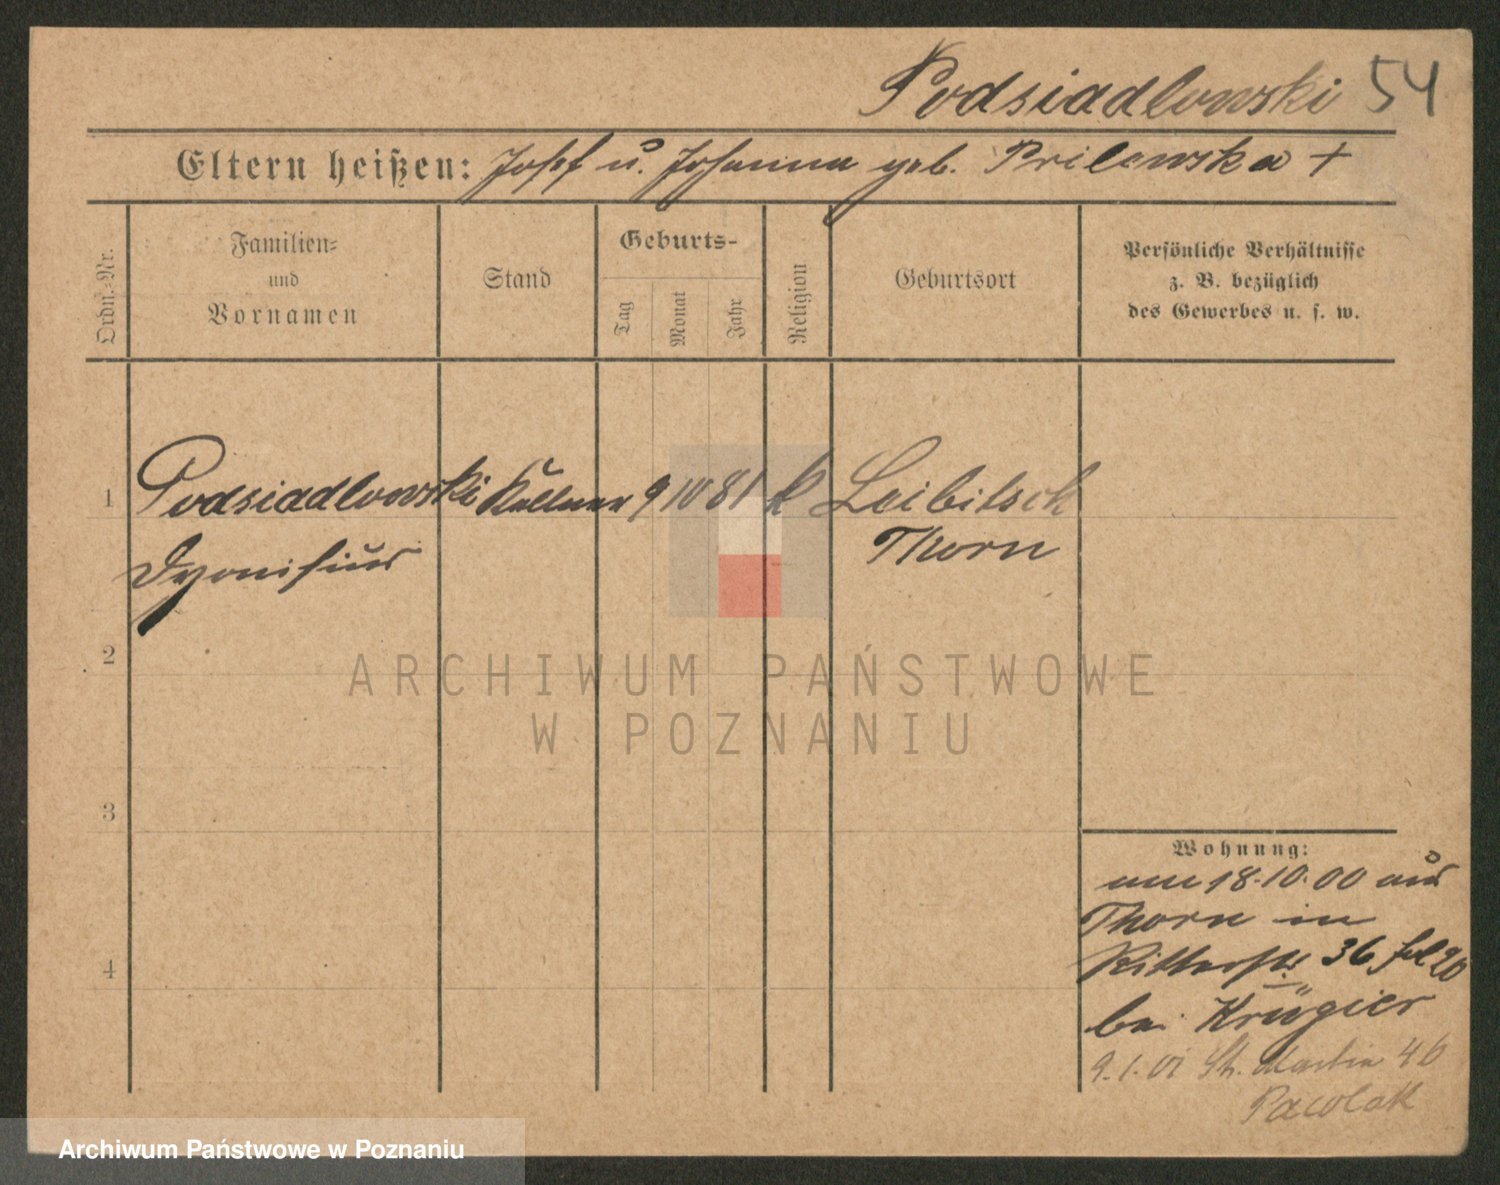 Podsiadlowski 54
Eltern heißen: Josef u. Johanna geb. Prilewska +
Ordn.-Nr.
Familien-
und
Vornamen
Stand
Geburts-
Tag
Monat
Jahr
Religion
Geburtsort
Persönliche Verhältnisse
z. B. bezüglich
des Gewerbes u. s. w.
1 Podsiadlowski Kellner 9 10 81 k Leibitsch
Dyonisius Thorn
2
3
4
Wohnung:
am 18.10.00 aus
Thorn in
Ritterstr. 36
bei Krügier
9.1.01 St. Martin 46
Pacolak
ARCHIWUM PAŃSTWOWE
W POZNANIU
Archiwum Państwowe w Poznaniu